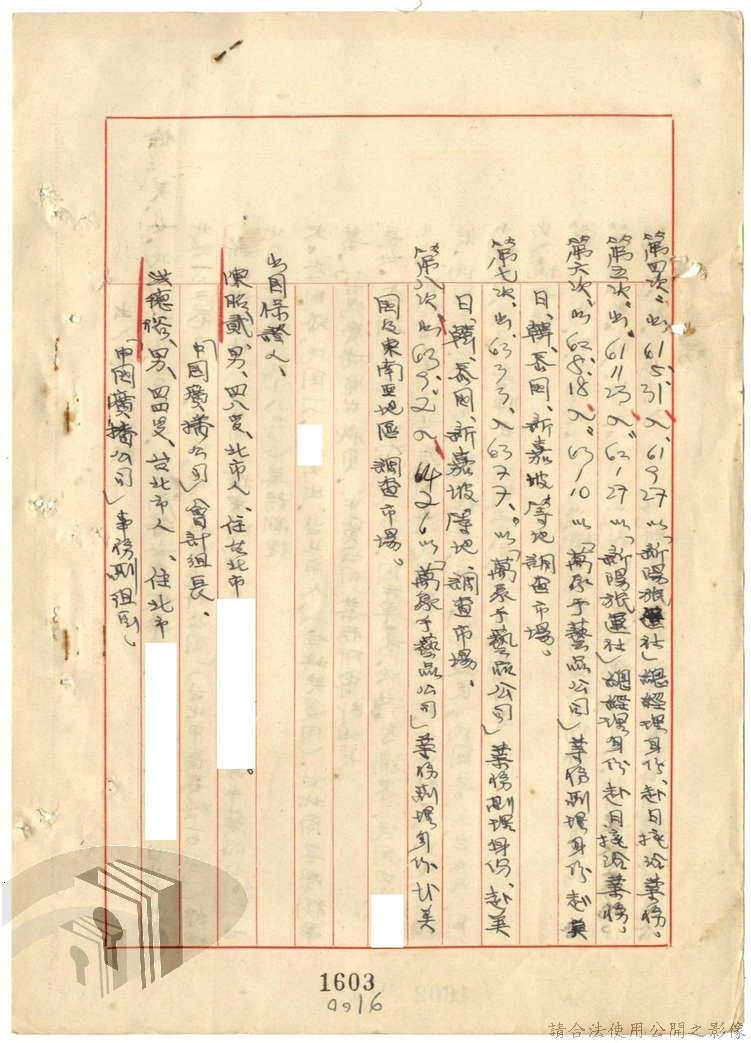 第四次、出、61.5.31、入、61.9.27以「新陽旅運社」總經理身份、赴日接洽業務。
第五次、出、61.11.23入、62.1.27以「新陽旅運社」總經理身份、赴日接洽業務。
第六次、出、62.8.18、入、63.1.10以「萬象手藝品公司」業務副理身份赴美
日、韓、泰國、新嘉坡等地調查市場。
第七次、出、63.3.3、入63.7.7、以「萬象手藝品公司」業務副理身份、赴美
日、韓、泰國、新嘉坡等地、調查市場、
第八次、出、63.9.2入、64.2.6以「萬象手藝品公司」業務副理身份赴美
國及東南亞地區、調查市場。
出國保證人、
陳昭貳、男、四八歲、北市人、住台北市
。
「中國廣播公司」會計組長、
洪德裕、男、四四歲、台北市人、住北市
「中國廣播公司」事務副組長、
1603
0016
請合法使用公開之影像